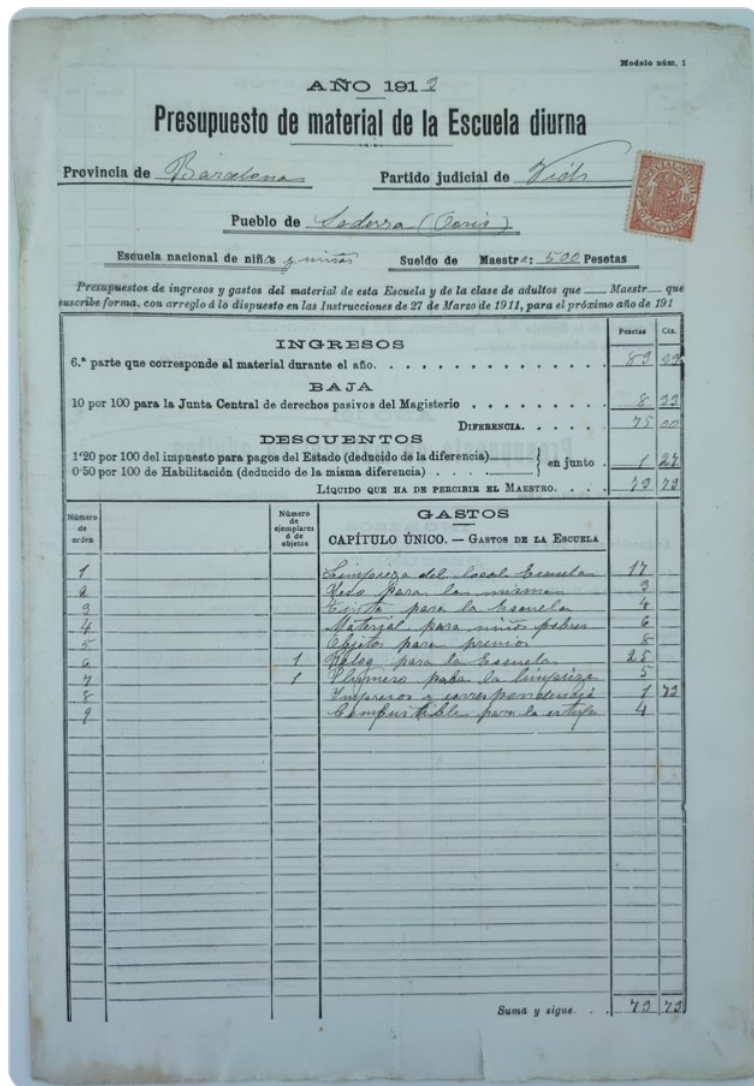 Modelo núm. 1
AÑO 1912
Presupuesto de material de la Escuela diurna
Provincia de Barcelona Partido judicial de Vich
Pueblo de Saderra (Oris)
Escuela nacional de niñas y niños Sueldo de Maestra: 500 Pesetas
Presupuestos de ingresos y gastos del material de esta Escuela y de la clase de adultos que ___ Maestr___ que
suscribe forma, con arreglo á lo dispuesto en las Instrucciones de 27 de Marzo de 1911, para el próximo año de 191
Pesetas Cts.
INGRESOS
6.ª parte que corresponde al material durante el año. 83 33
BAJA
10 por 100 para la Junta Central de derechos pasivos del Magisterio 8 33
DIFERENCIA. 75 00
DESCUENTOS
1'20 por 100 del impuesto para pagos del Estado (deducido de la diferencia)
0'50 por 100 de Habilitación (deducido de la misma diferencia) } en junto 1 27
LÍQUIDO QUE HA DE PERCIBIR EL MAESTRO. 73 73
Número de orden
Número de ejemplares ó de objetos
GASTOS
CAPÍTULO ÚNICO. — GASTOS DE LA ESCUELA
1 Limpieza del local Escuela 17
2 para la misma 3
3 para la Escuela 4
4 Material para niños pobres 6
5 Objetos para premios 8
6 1 para la Escuela 25
7 1 Plumero para la limpieza 5
8 Impresos y correspondencia 1 73
9 Combustible para la estufa 4
Suma y sigue. 73 73